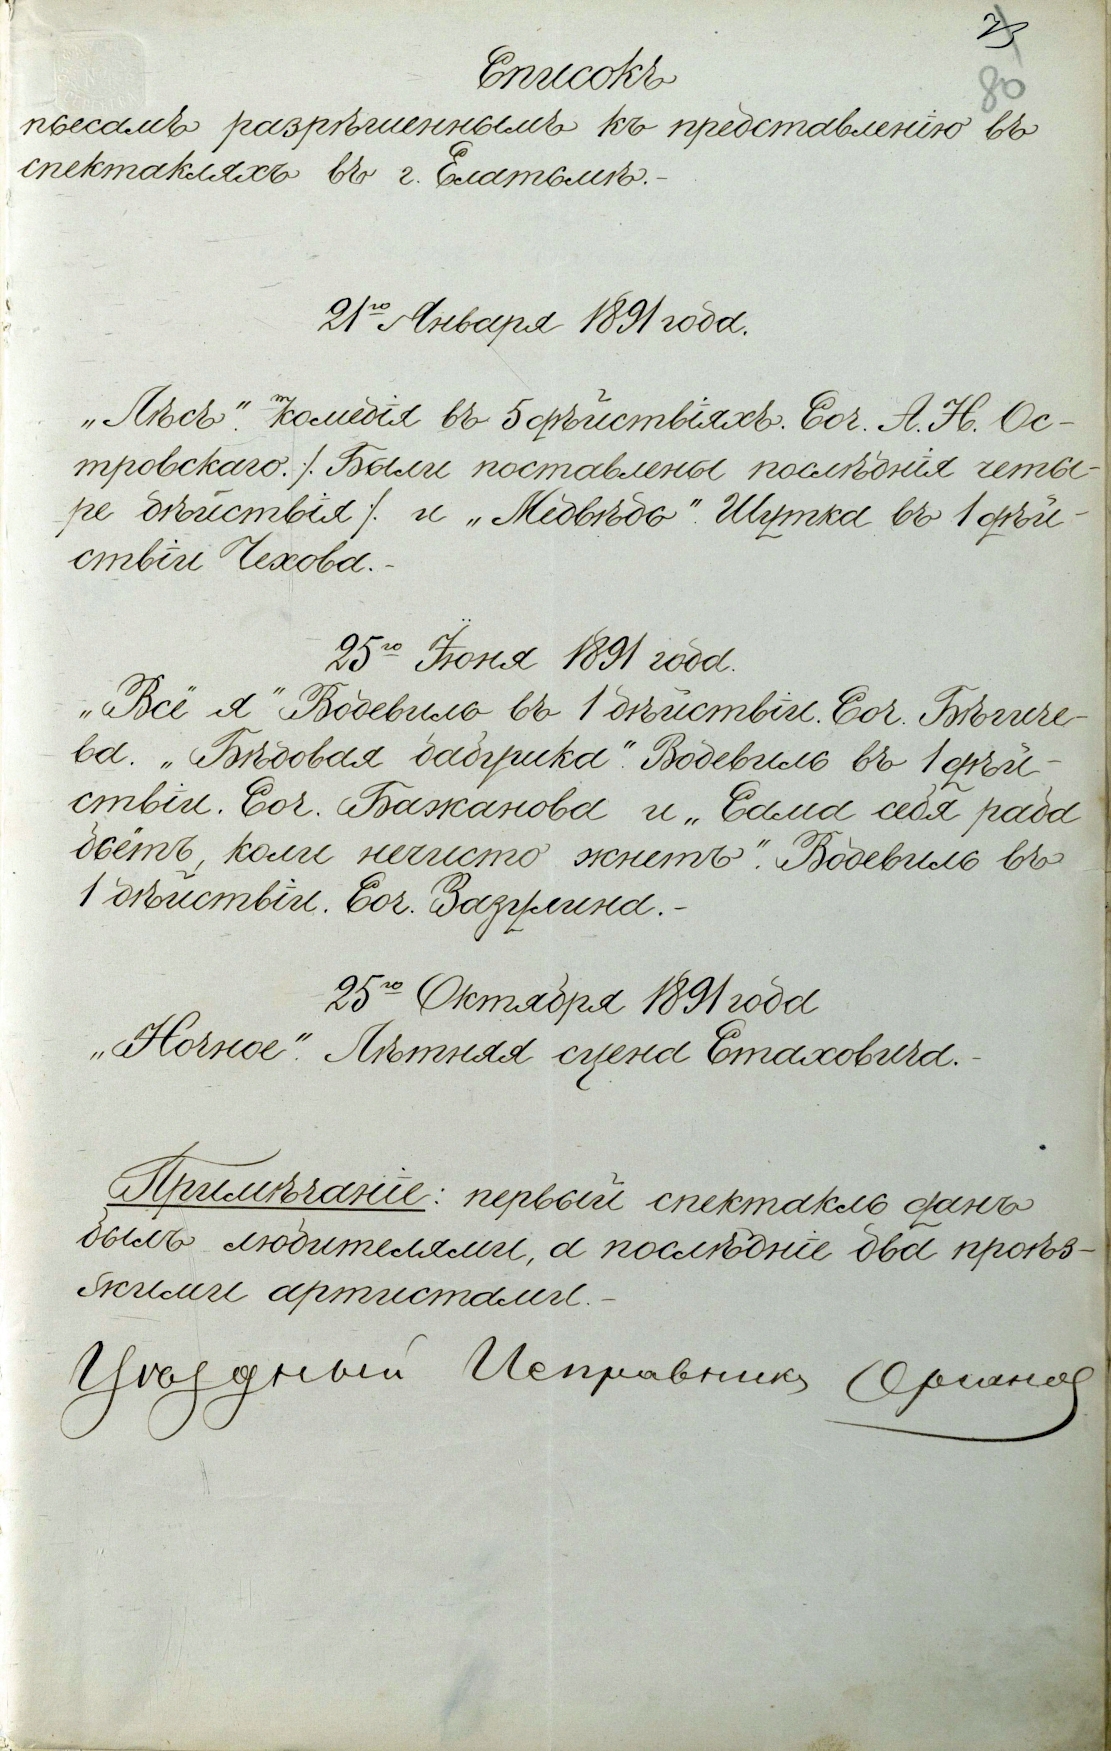 80
Списокъ
пьесамъ разрѣшеннымъ къ представленію въ
спектакляхъ въ г. Елатьмѣ.-
21го Января 1891 года.
„Лѣсъ“. Комедія въ 5 дѣйствіяхъ. Соч. А. Н. Ос-
тровскаго. /. Были поставлены послѣднія четы-
ре дѣйствія /. и „Медвѣдь“. Шутка въ 1 дѣй-
ствіи Чехова.-
25го Іюня 1891 года.
„Всё я“ Водевиль въ 1 дѣйствіи. Соч. Бѣгиче-
ва. „Бѣдовая бабушка“. Водевиль въ 1 дѣй-
ствіи. Соч. Бажанова и „Сама себя раба
бьётъ, коли нечисто жнетъ“. Водевиль въ
1 дѣйствіи. Соч. Вазулина.-
25го Октября 1891 года
„Ночное“. Лѣтняя сцена Стаховича.-
Примѣчаніе: первый спектакль данъ
былъ любителями, а послѣдніе два проѣз-
жими артистами.-
Уѣздный Исправникъ